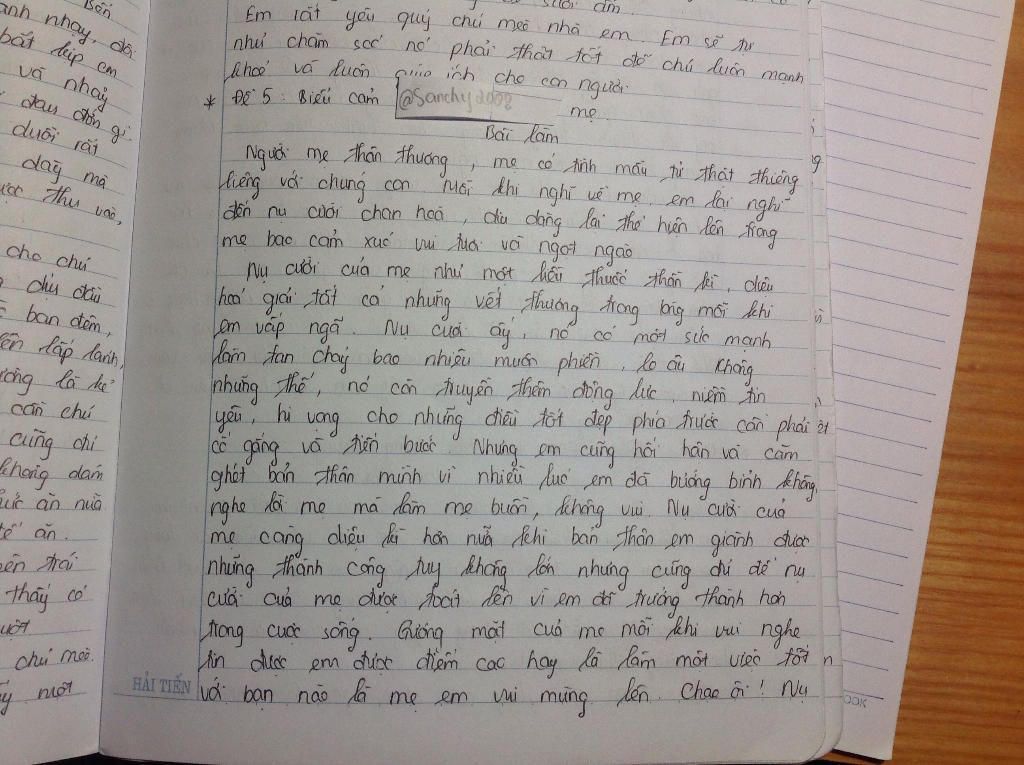 Bên
anh nhạy, đôi
bắt đúp em
và nhảy
đau đớn gì
duôi rất
dạg mà
ược thu vào,
cho chú
dịu dàu
ban đêm,
ên lấp lanh,
ương là kẻ
căn chú
cũng chỉ
khong dám
ức ăn nữa
tế ăn.
ên trái
thấy có
uột
chú mèo.
ấy nuột
suối ấm
Em rất yêu quý chú mèo nhà em. Em sẽ tự
nhủ chăm soć nó phải thật tốt để chú luôn mạnh
khoẻ và luôn giúp ích cho con người.
* Đề 5: Biểu cảm @Sanchy2008 mẹ
Bài làm
Người mẹ thân thương, mẹ có tình mẫu tử thật thiêng
liêng với chúng con. Mỗi khi nghĩ về mẹ, em lại nghĩ
đến nụ cười chan hoà, dịu dàng lại thể hiện lên trong
mẹ bao cảm xúc vui tươi và ngọt ngào
Nụ cười của mẹ như một liều thuốc thần kì, diệu
hoá giải tất cả những vết thương trong lòng mỗi khi
em vấp ngã. Nụ cười ấy, nó có một sức mạnh
làm tan chảy bao nhiêu muộn phiền, lo âu. Không
những thế, nó còn truyền thêm động lực, niềm tin
yêu, hi vọng cho những điều tốt đẹp phía trước cần phải
cố gắng và tiến bước. Nhưng em cũng hối hận và căm
ghét bản thân mình vì nhiều lúc em đã bướng bỉnh không
nghe lời mẹ mà làm mẹ buồn, không vui. Nụ cười của
mẹ càng diệu kì hơn nữa khi bản thân em giành được
những thành công tuy không lớn nhưng cũng đủ để nụ
cười của mẹ được toát lên vì em đã trưởng thành hơn
trong cuộc sống. Gương mặt của mẹ mỗi khi vui nghe
tin được em được điểm cao hay là làm một việc tốt
với bạn nào là mẹ em vui mừng lên. Chao ôi! Nụ
HẢI TIẾN